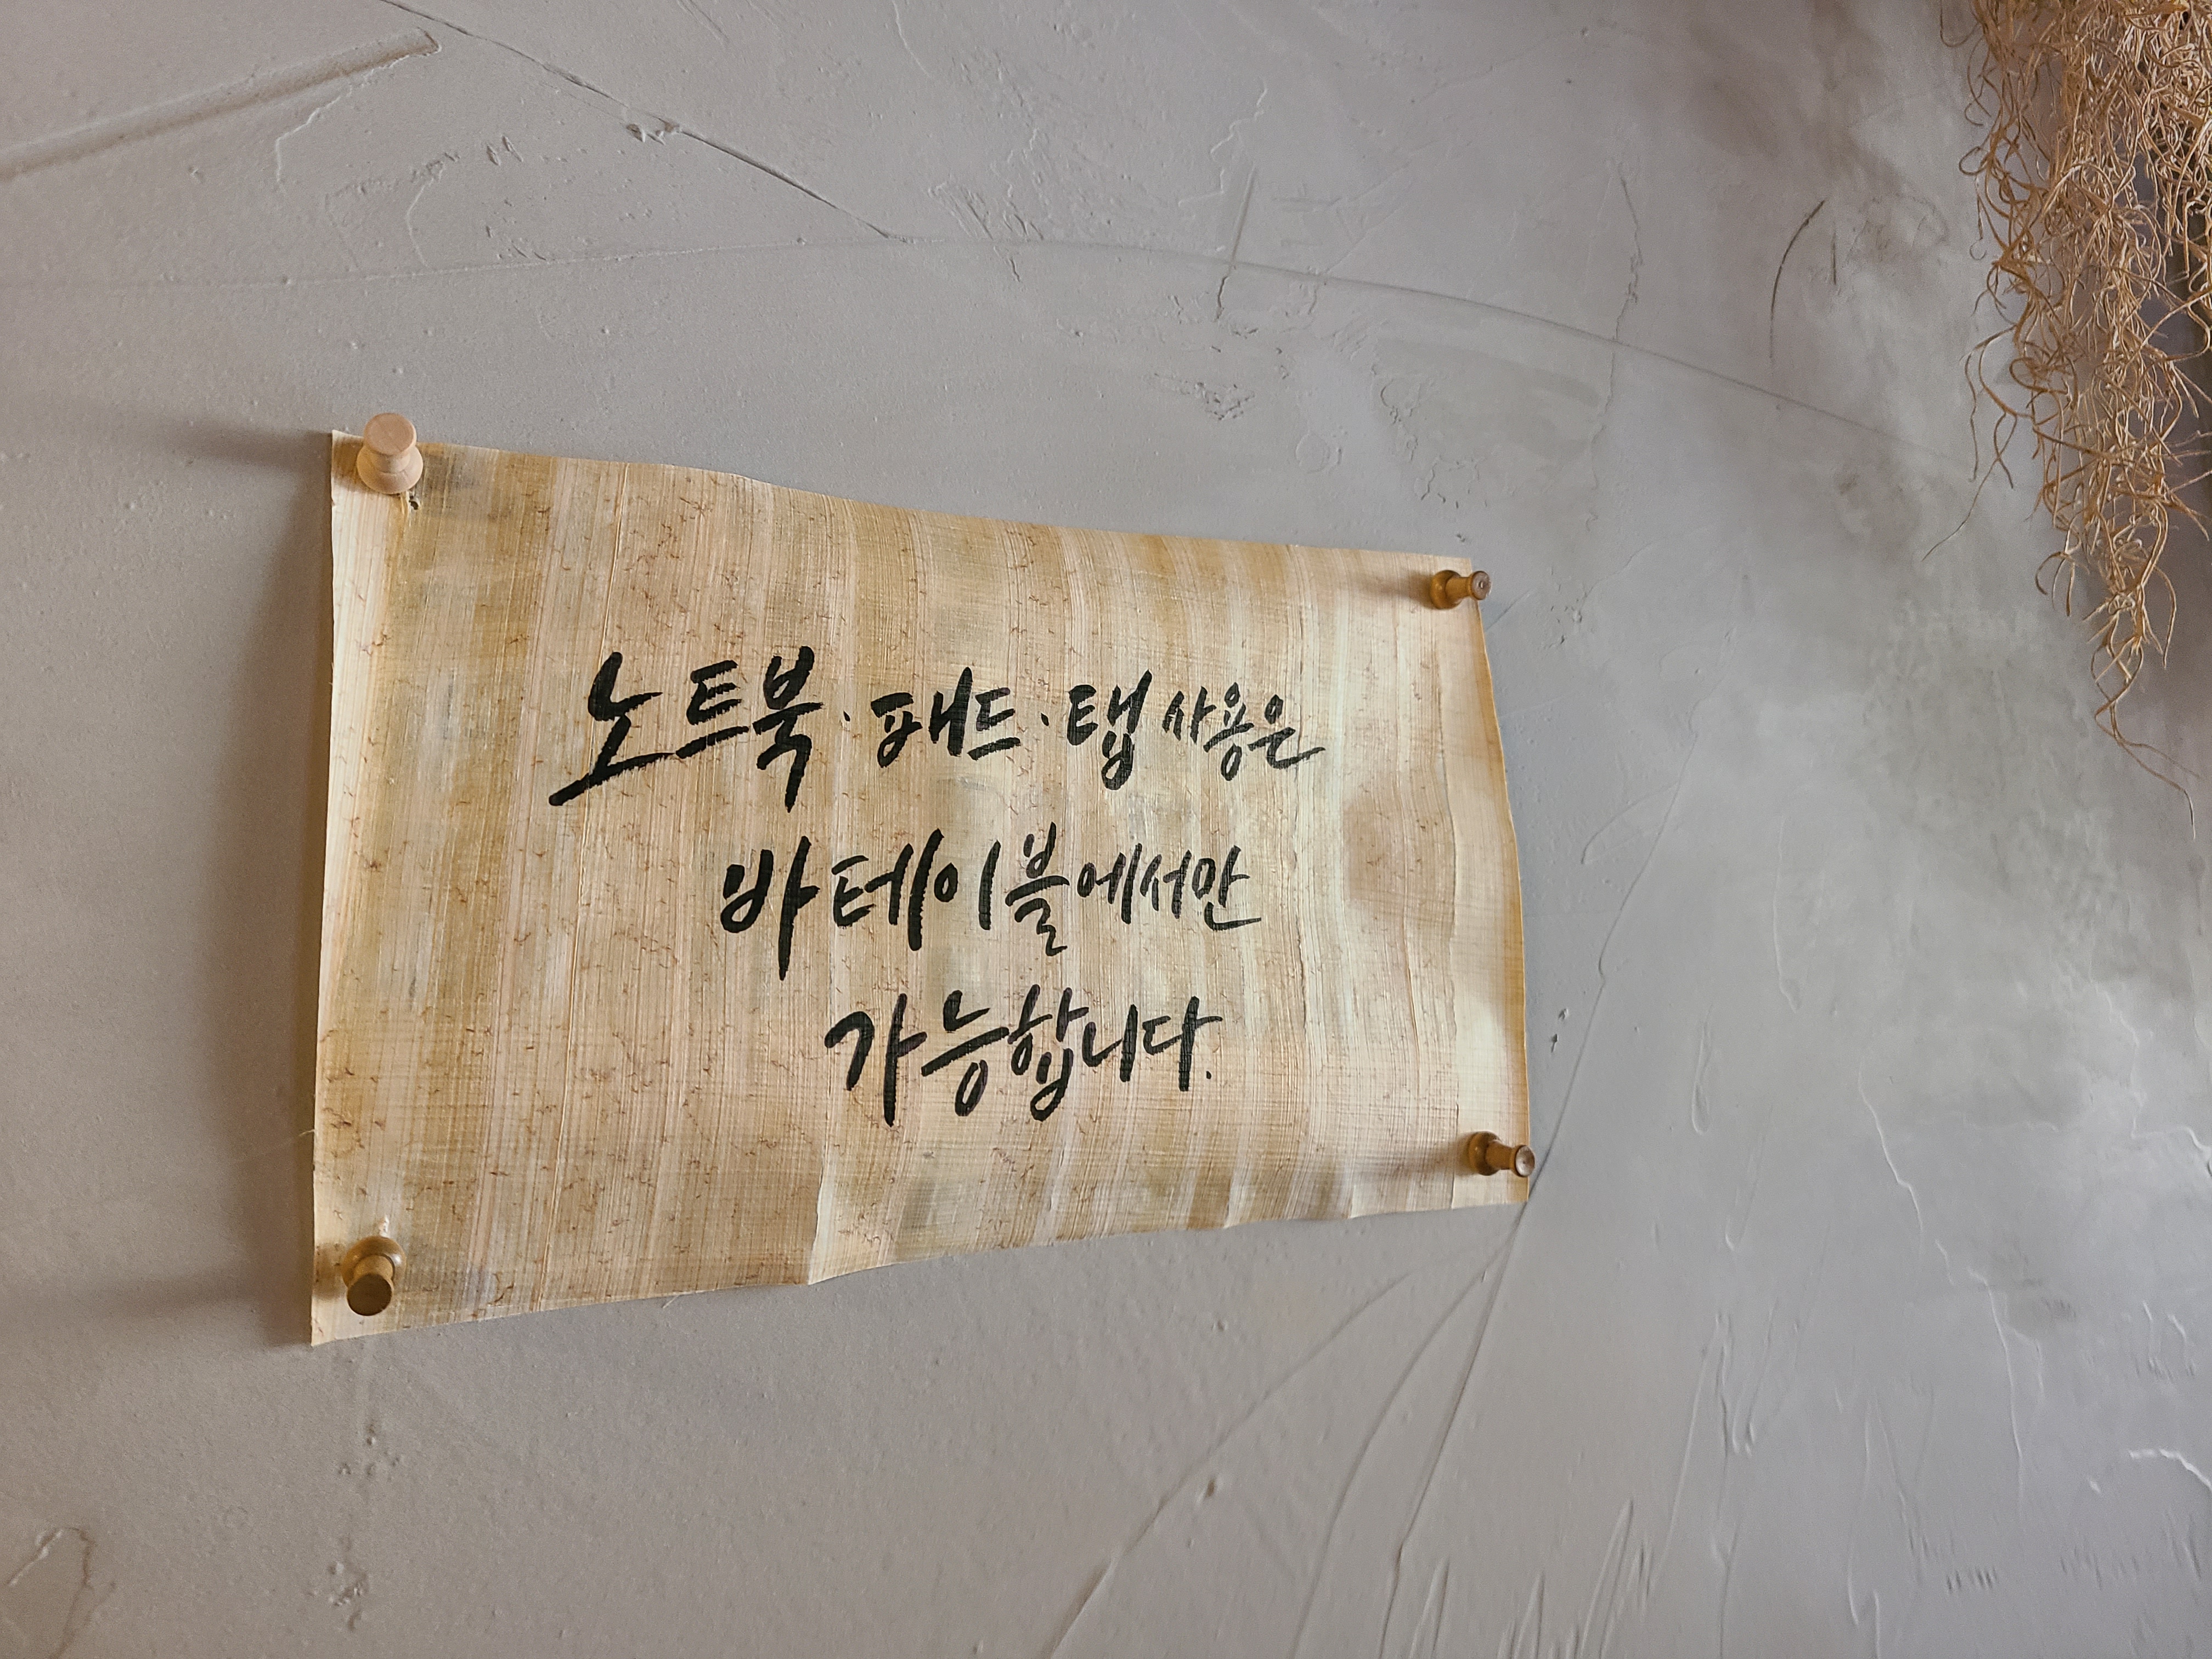 노트북·패드·탭 사용은
바 테이블에서만
가능합니다.